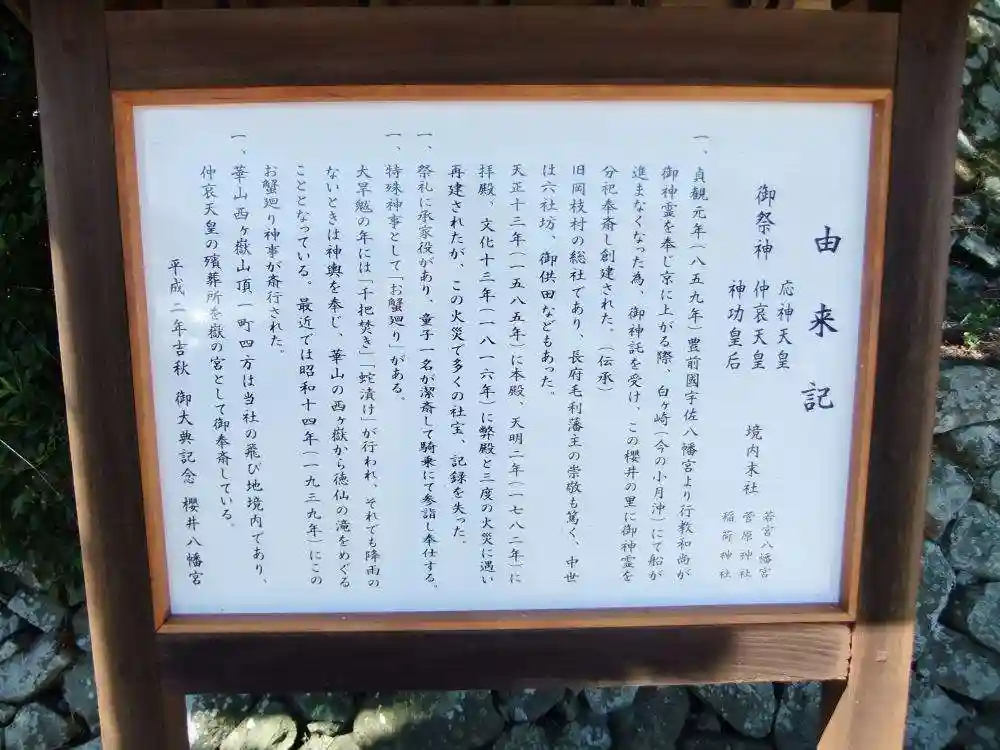 由来記
御祭神
応神天皇
仲哀天皇
神功皇后
境内末社
若宮八幡宮
菅原神社
稲荷神社
一、貞観元年(八五九年)豊前國宇佐八幡宮より行教和尚が
御神霊を奉じ京に上がる際、白ヶ崎(今の小月沖)にて船が
進まなくなった為、御神託を受け、この櫻井の里に御神霊を
分祀奉斎し創建された。(伝承)
旧岡枝村の総社であり、長府毛利藩主の崇敬も篤く、中世
は六社坊、御供田などもあった。
天正十三年(一五八五年)に本殿、天明二年(一七八二年)に
拝殿、文化十三年(一八一六年)に弊殿と三度の火災に遇い
再建されたが、この火災で多くの社宝、記録を失った。
一、祭礼に承家役があり、童子一名が潔斎して騎乗にて参詣し奉仕する。
一、特殊神事として「お蟹廻り」がある。
大旱魃の年には「千把焚き」「蛇漬け」が行われ、それでも降雨の
ないときは神輿を奉じ、華山の西ヶ嶽から徳仙の滝をめぐる
こととなっている。最近では昭和十四年(一九三九年)にこの
お蟹廻り神事が斎行された。
一、華山西ヶ嶽山頂一町四方は当社の飛び地境内であり、
仲哀天皇の殯葬所を嶽の宮として御奉斎している。
平成二年吉秋 御大典記念 櫻井八幡宮